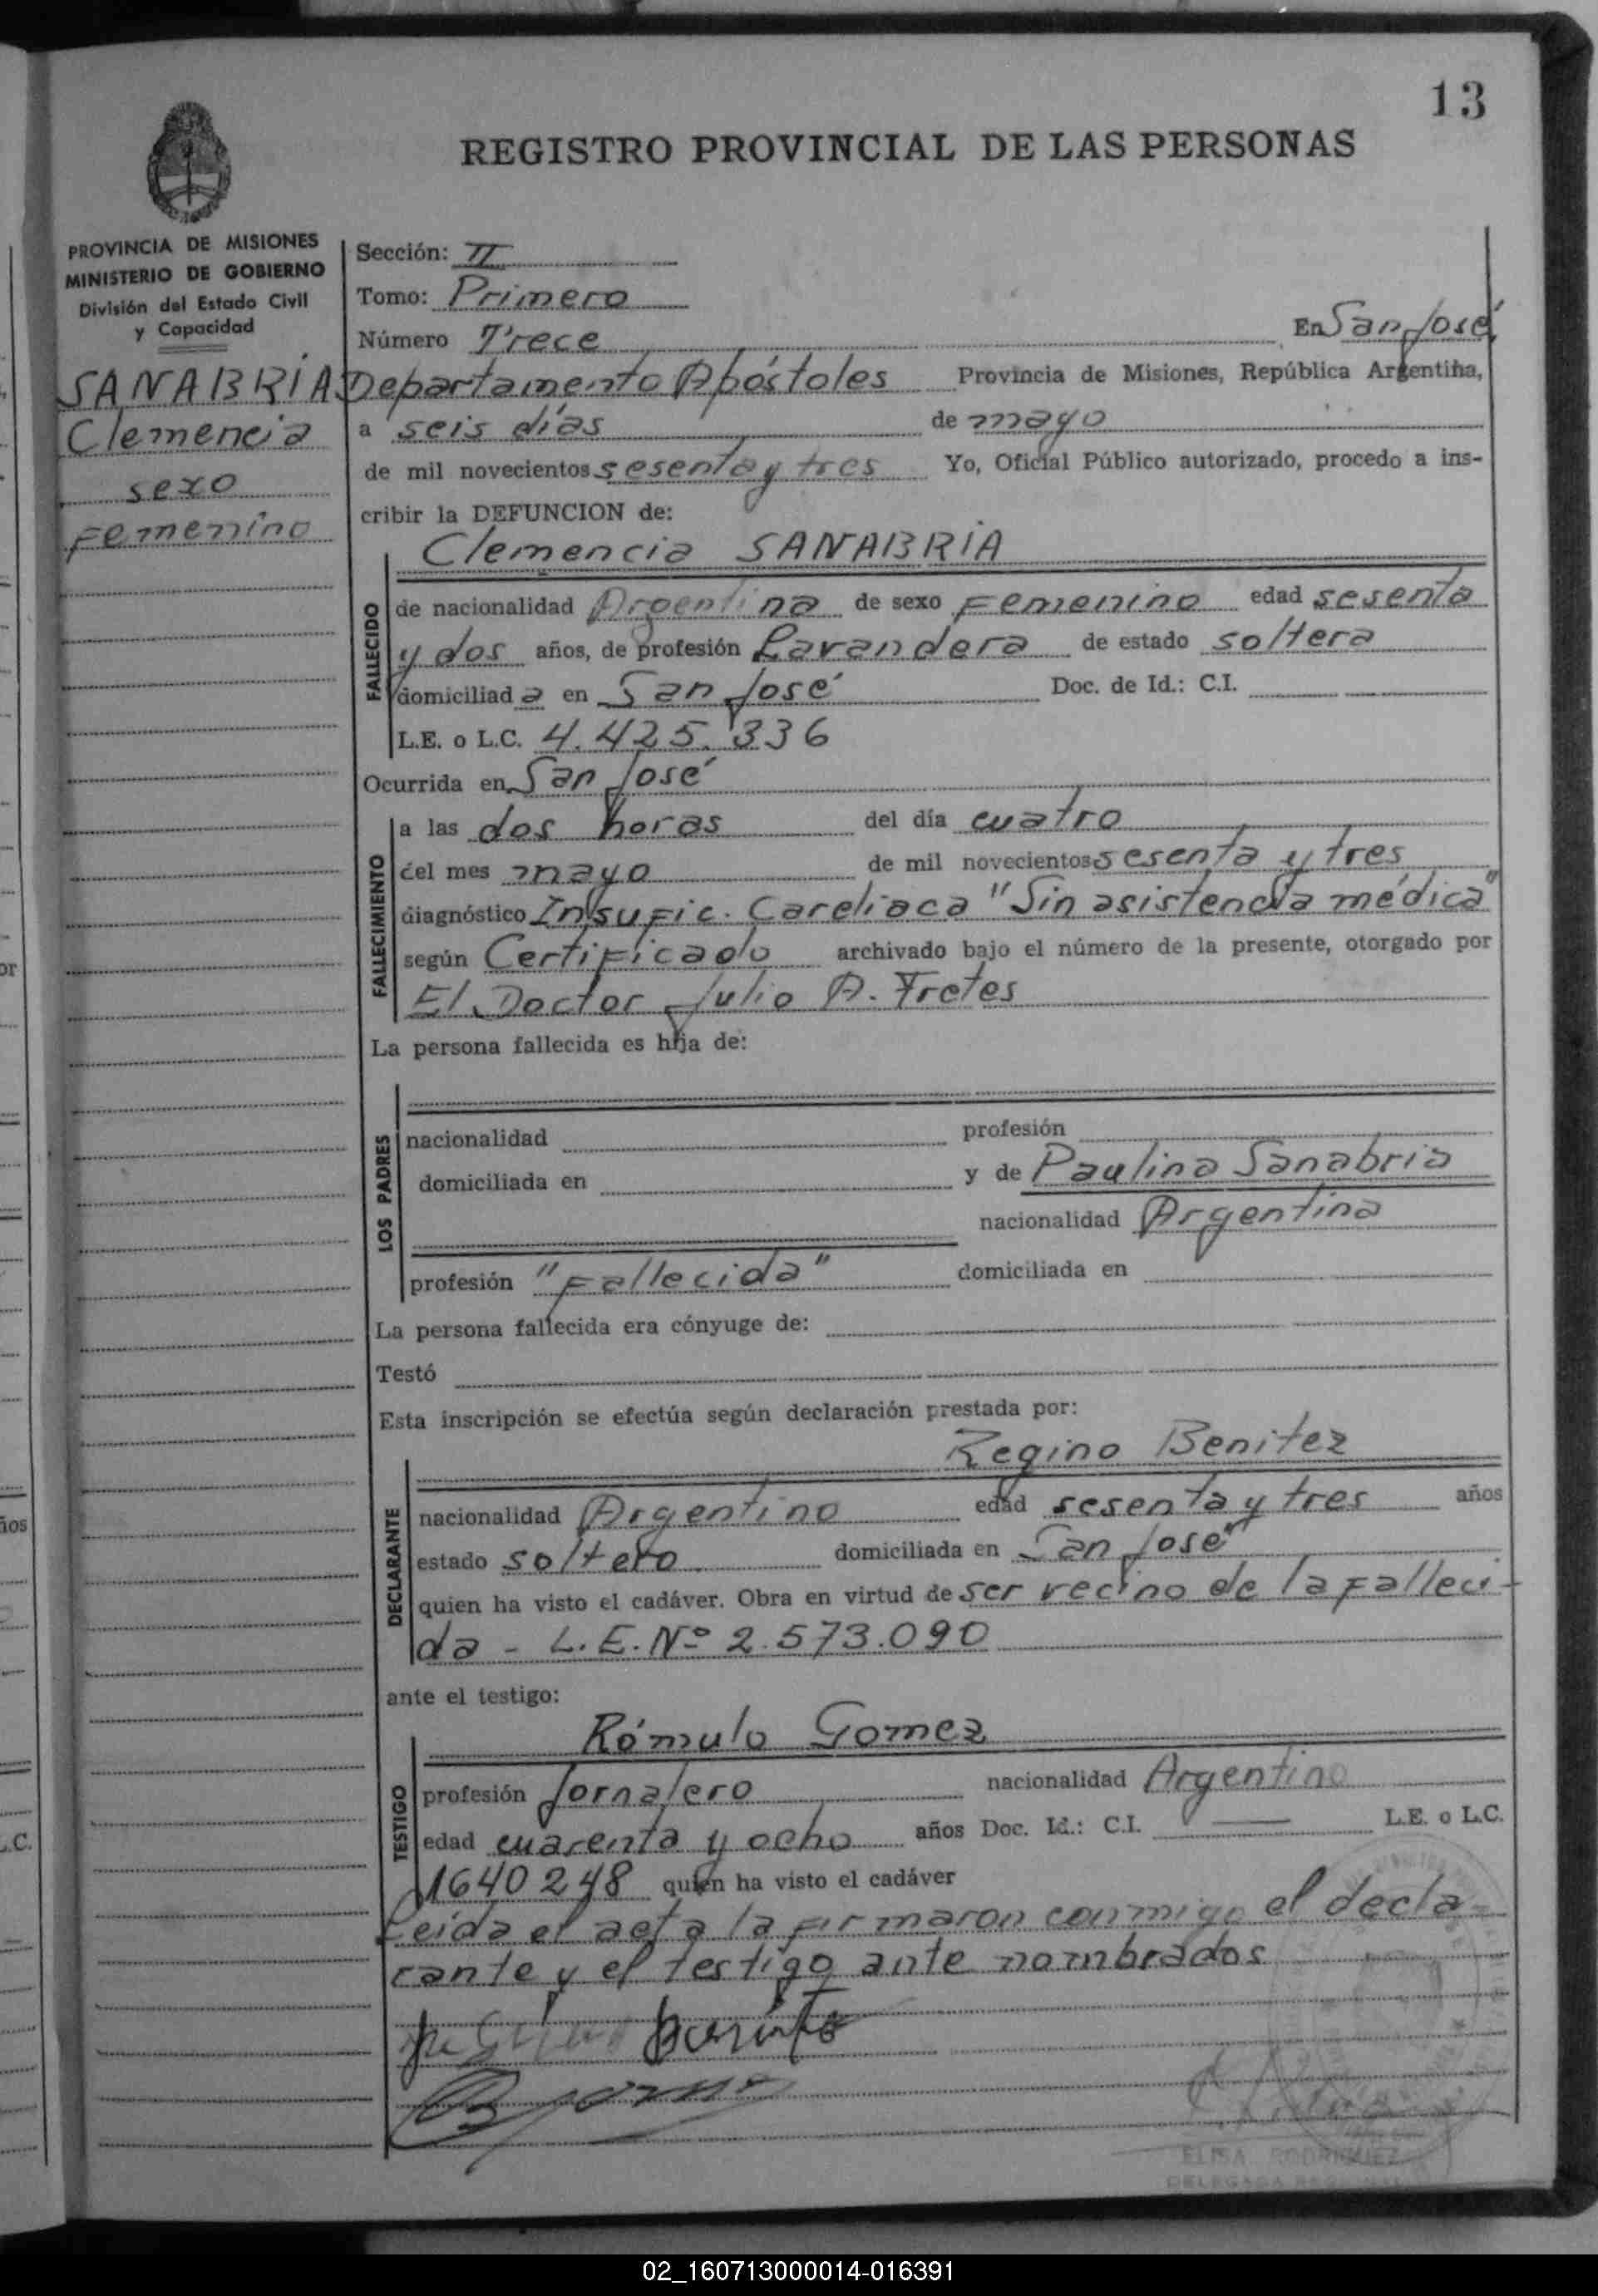 13
REGISTRO PROVINCIAL DE LAS PERSONAS
PROVINCIA DE MISIONES
MINISTERIO DE GOBIERNO
División del Estado Civil
y Capacidad
SANABRIA
Clemencia
sexo
Femenino
Sección: II
Tomo: Primero
Número Trece En San José
Departamento Apóstoles Provincia de Misiones, República Argentina,
a seis días de mayo
de mil novecientos sesenta y tres Yo, Oficial Público autorizado, procedo a ins-
cribir la DEFUNCION de:
Clemencia SANABRIA
FALLECIDO
de nacionalidad Argentina de sexo Femenino edad sesenta
y dos años, de profesión Lavandera de estado soltera
domiciliada en San José Doc. de Id.: C.I.
L.E. o L.C. 4.425.336
Ocurrida en San José
FALLECIMIENTO
a las dos horas del día cuatro
del mes mayo de mil novecientos sesenta y tres
diagnóstico Insufic. Cardiaca "Sin asistencia médica"
según Certificado archivado bajo el número de la presente, otorgado por
El Doctor Julio A. Fretes
La persona fallecida es hija de:
LOS PADRES
nacionalidad profesión
domiciliada en y de Paulina Sanabria
nacionalidad Argentina
profesión "Fallecida" domiciliada en
La persona fallecida era cónyuge de:
Testó
Esta inscripción se efectúa según declaración prestada por:
Regino Benitez
DECLARANTE
nacionalidad Argentino edad sesenta y tres años
estado soltero domiciliada en San José
quien ha visto el cadáver. Obra en virtud de ser vecino de la falleci-
da - L.E. Nº 2.573.090
ante el testigo:
Rómulo Gomez
TESTIGO
profesión Jornalero nacionalidad Argentino
edad cuarenta y ocho años Doc. Id.: C.I. — L.E. o L.C.
1640248 quien ha visto el cadáver
Leída el acta la firmaron conmigo el decla-
rante y el testigo ante nombrados
ELISA RODRIGUEZ
DELEGADA
02_160713000014-016391